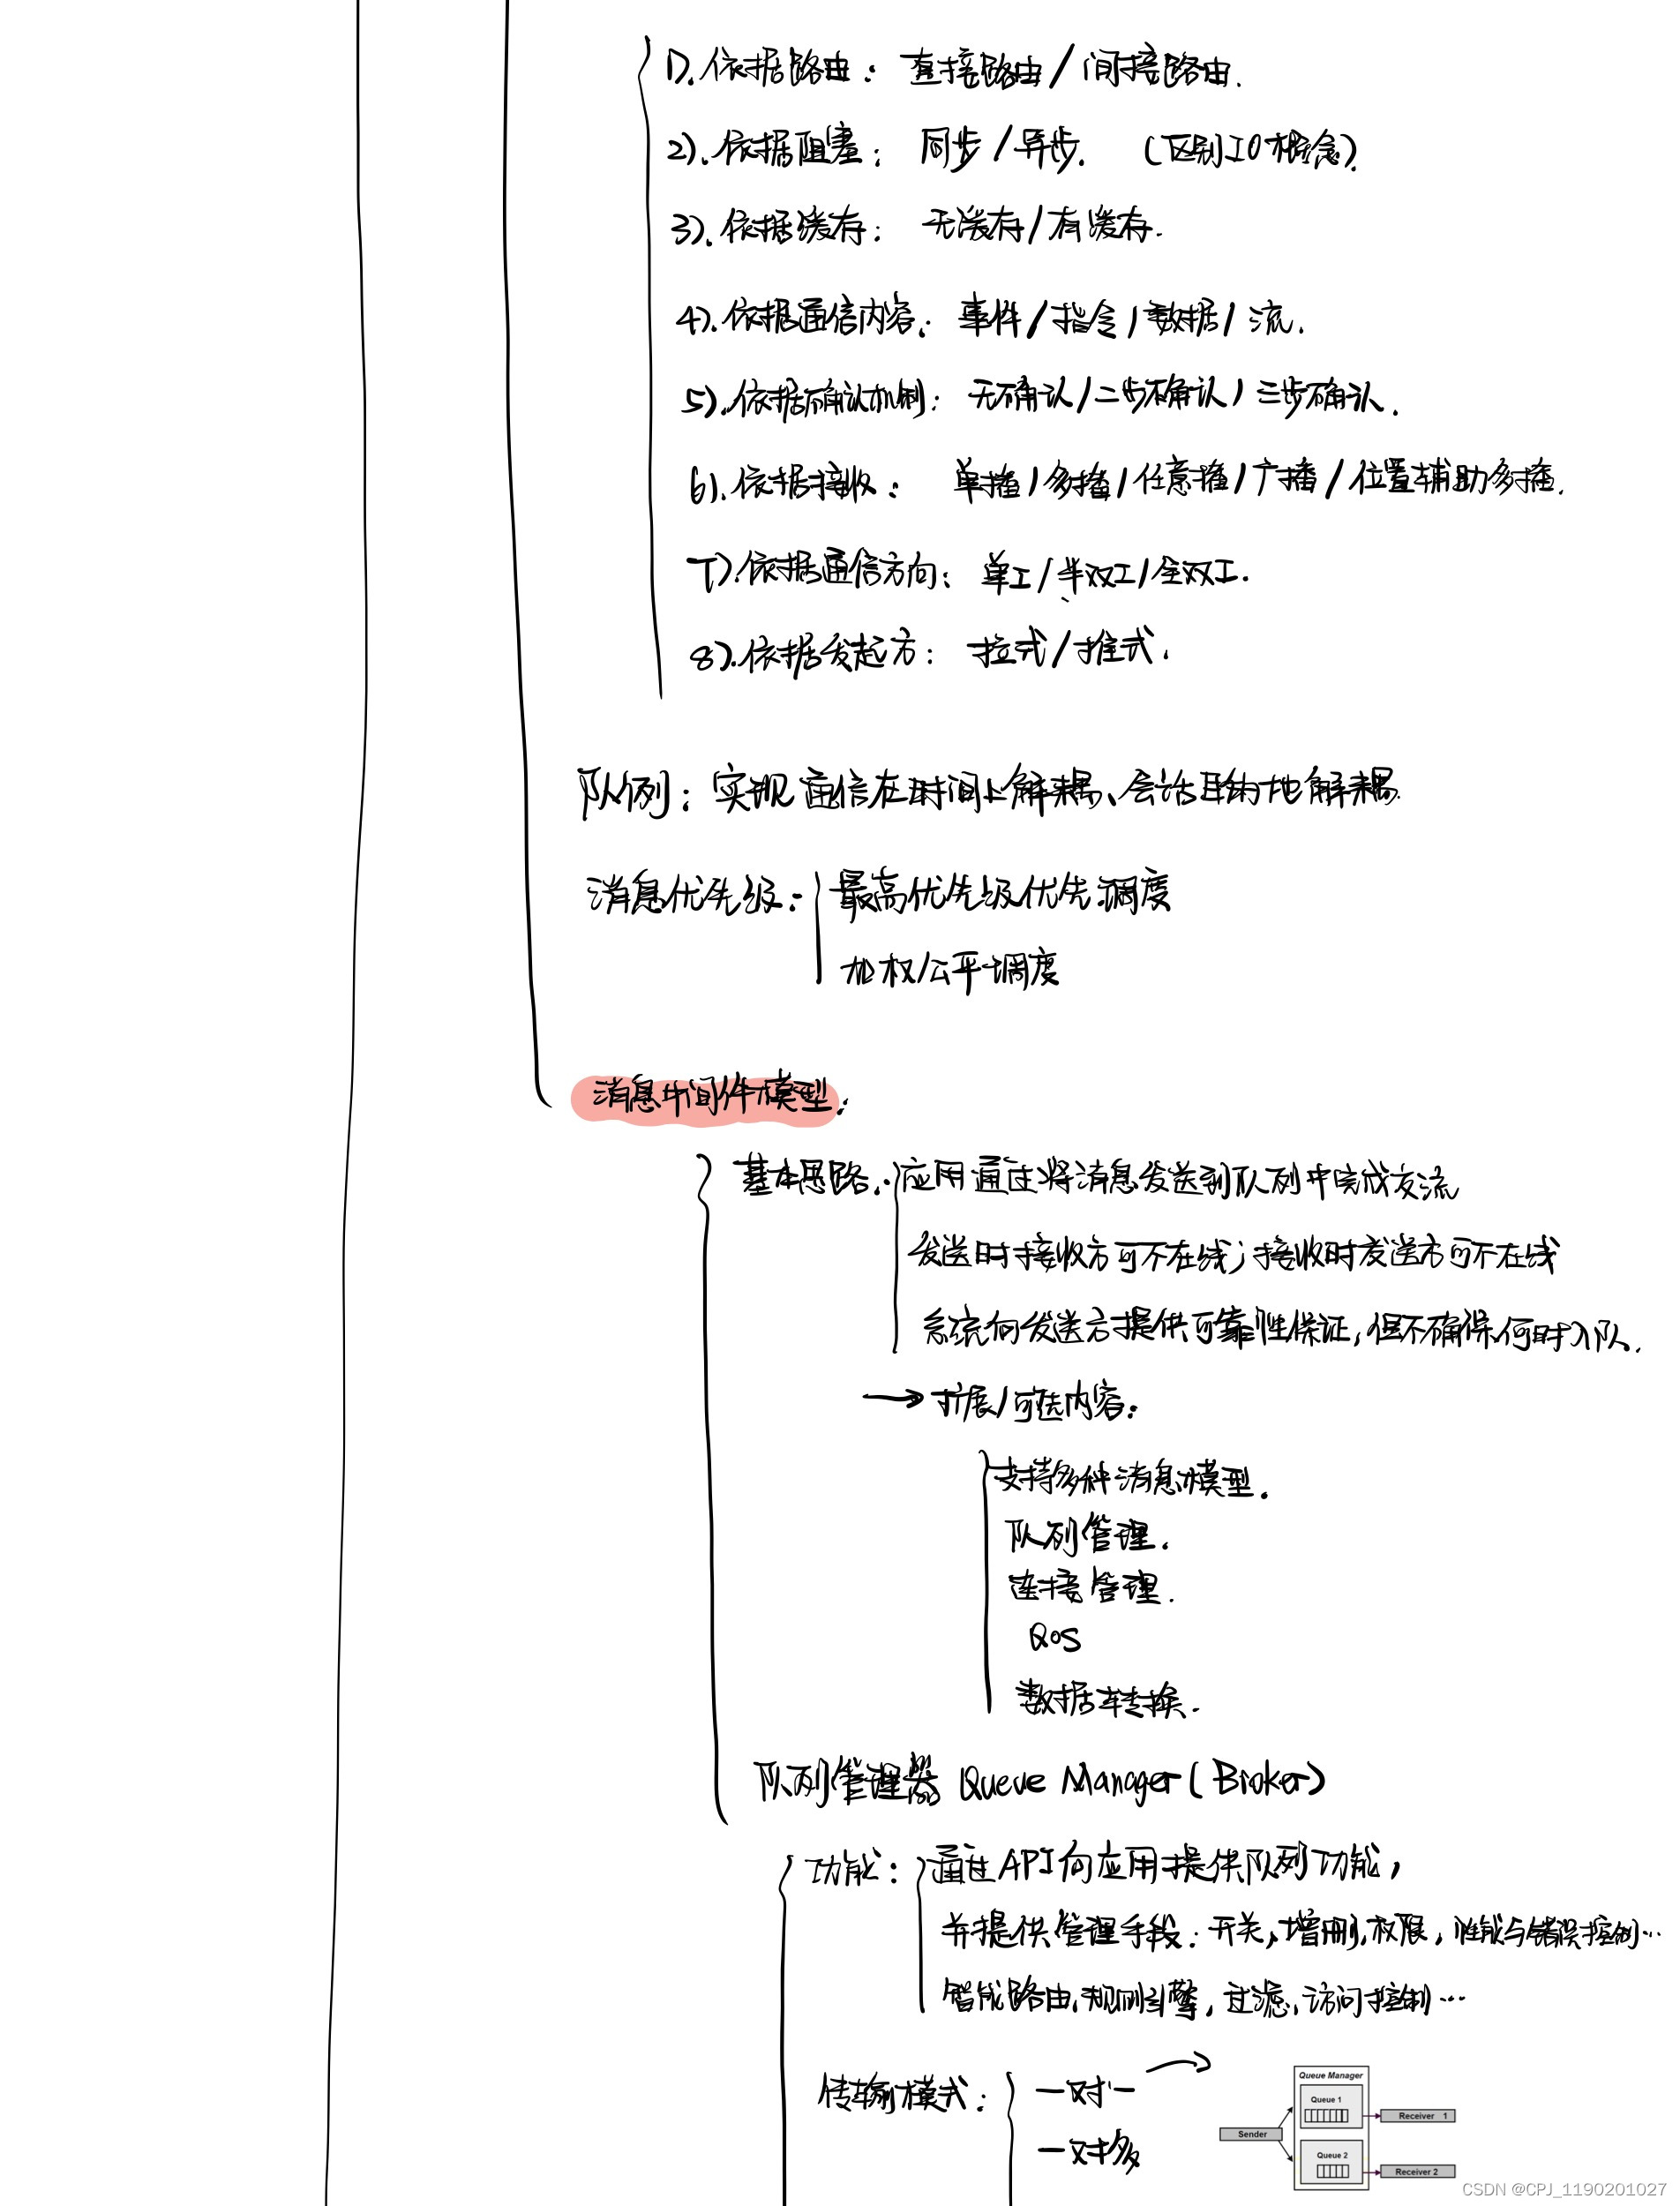 1).依据路由: 直接路由/间接路由.
2).依据阻塞: 同步/异步. (区别IO概念).
3).依据缓存: 无缓存/有缓存.
4).依据通信内容: 事件/指令/数据/流.
5).依据确认机制: 无确认/二步确认/三步确认.
6).依据接收: 单播/多播/任意播/广播/位置辅助多播.
7).依据通信方向: 单工/半双工/全双工.
8).依据发起方: 拉式/推式.
队列: 实现通信在时间上解耦、会话异地解耦
消息优先级: 最高优先级优先调度
加权公平调度
消息中间件模型:
基本思路: 应用通过将消息发送到队列中完成交流
发送时接收方可不在线;接收时发送方可不在线
系统向发送方提供可靠性保证,但不确保何时入队.
→ 扩展/可选内容:
支持多种消息模型.
队列管理.
连接管理.
QoS
数据转换.
队列管理器 Queue Manager(Broker)
功能: 通过API向应用提供队列功能,
并提供管理手段: 开关,增删,权限,性能与错误控制…
智能路由,规则引擎,过滤,访问控制…
传输模式: 一对一
一对多
Queue Manager
Queue 1
Receiver 1
Sender
Queue 2
Receiver 2
CSDN @CPJ_1190201027